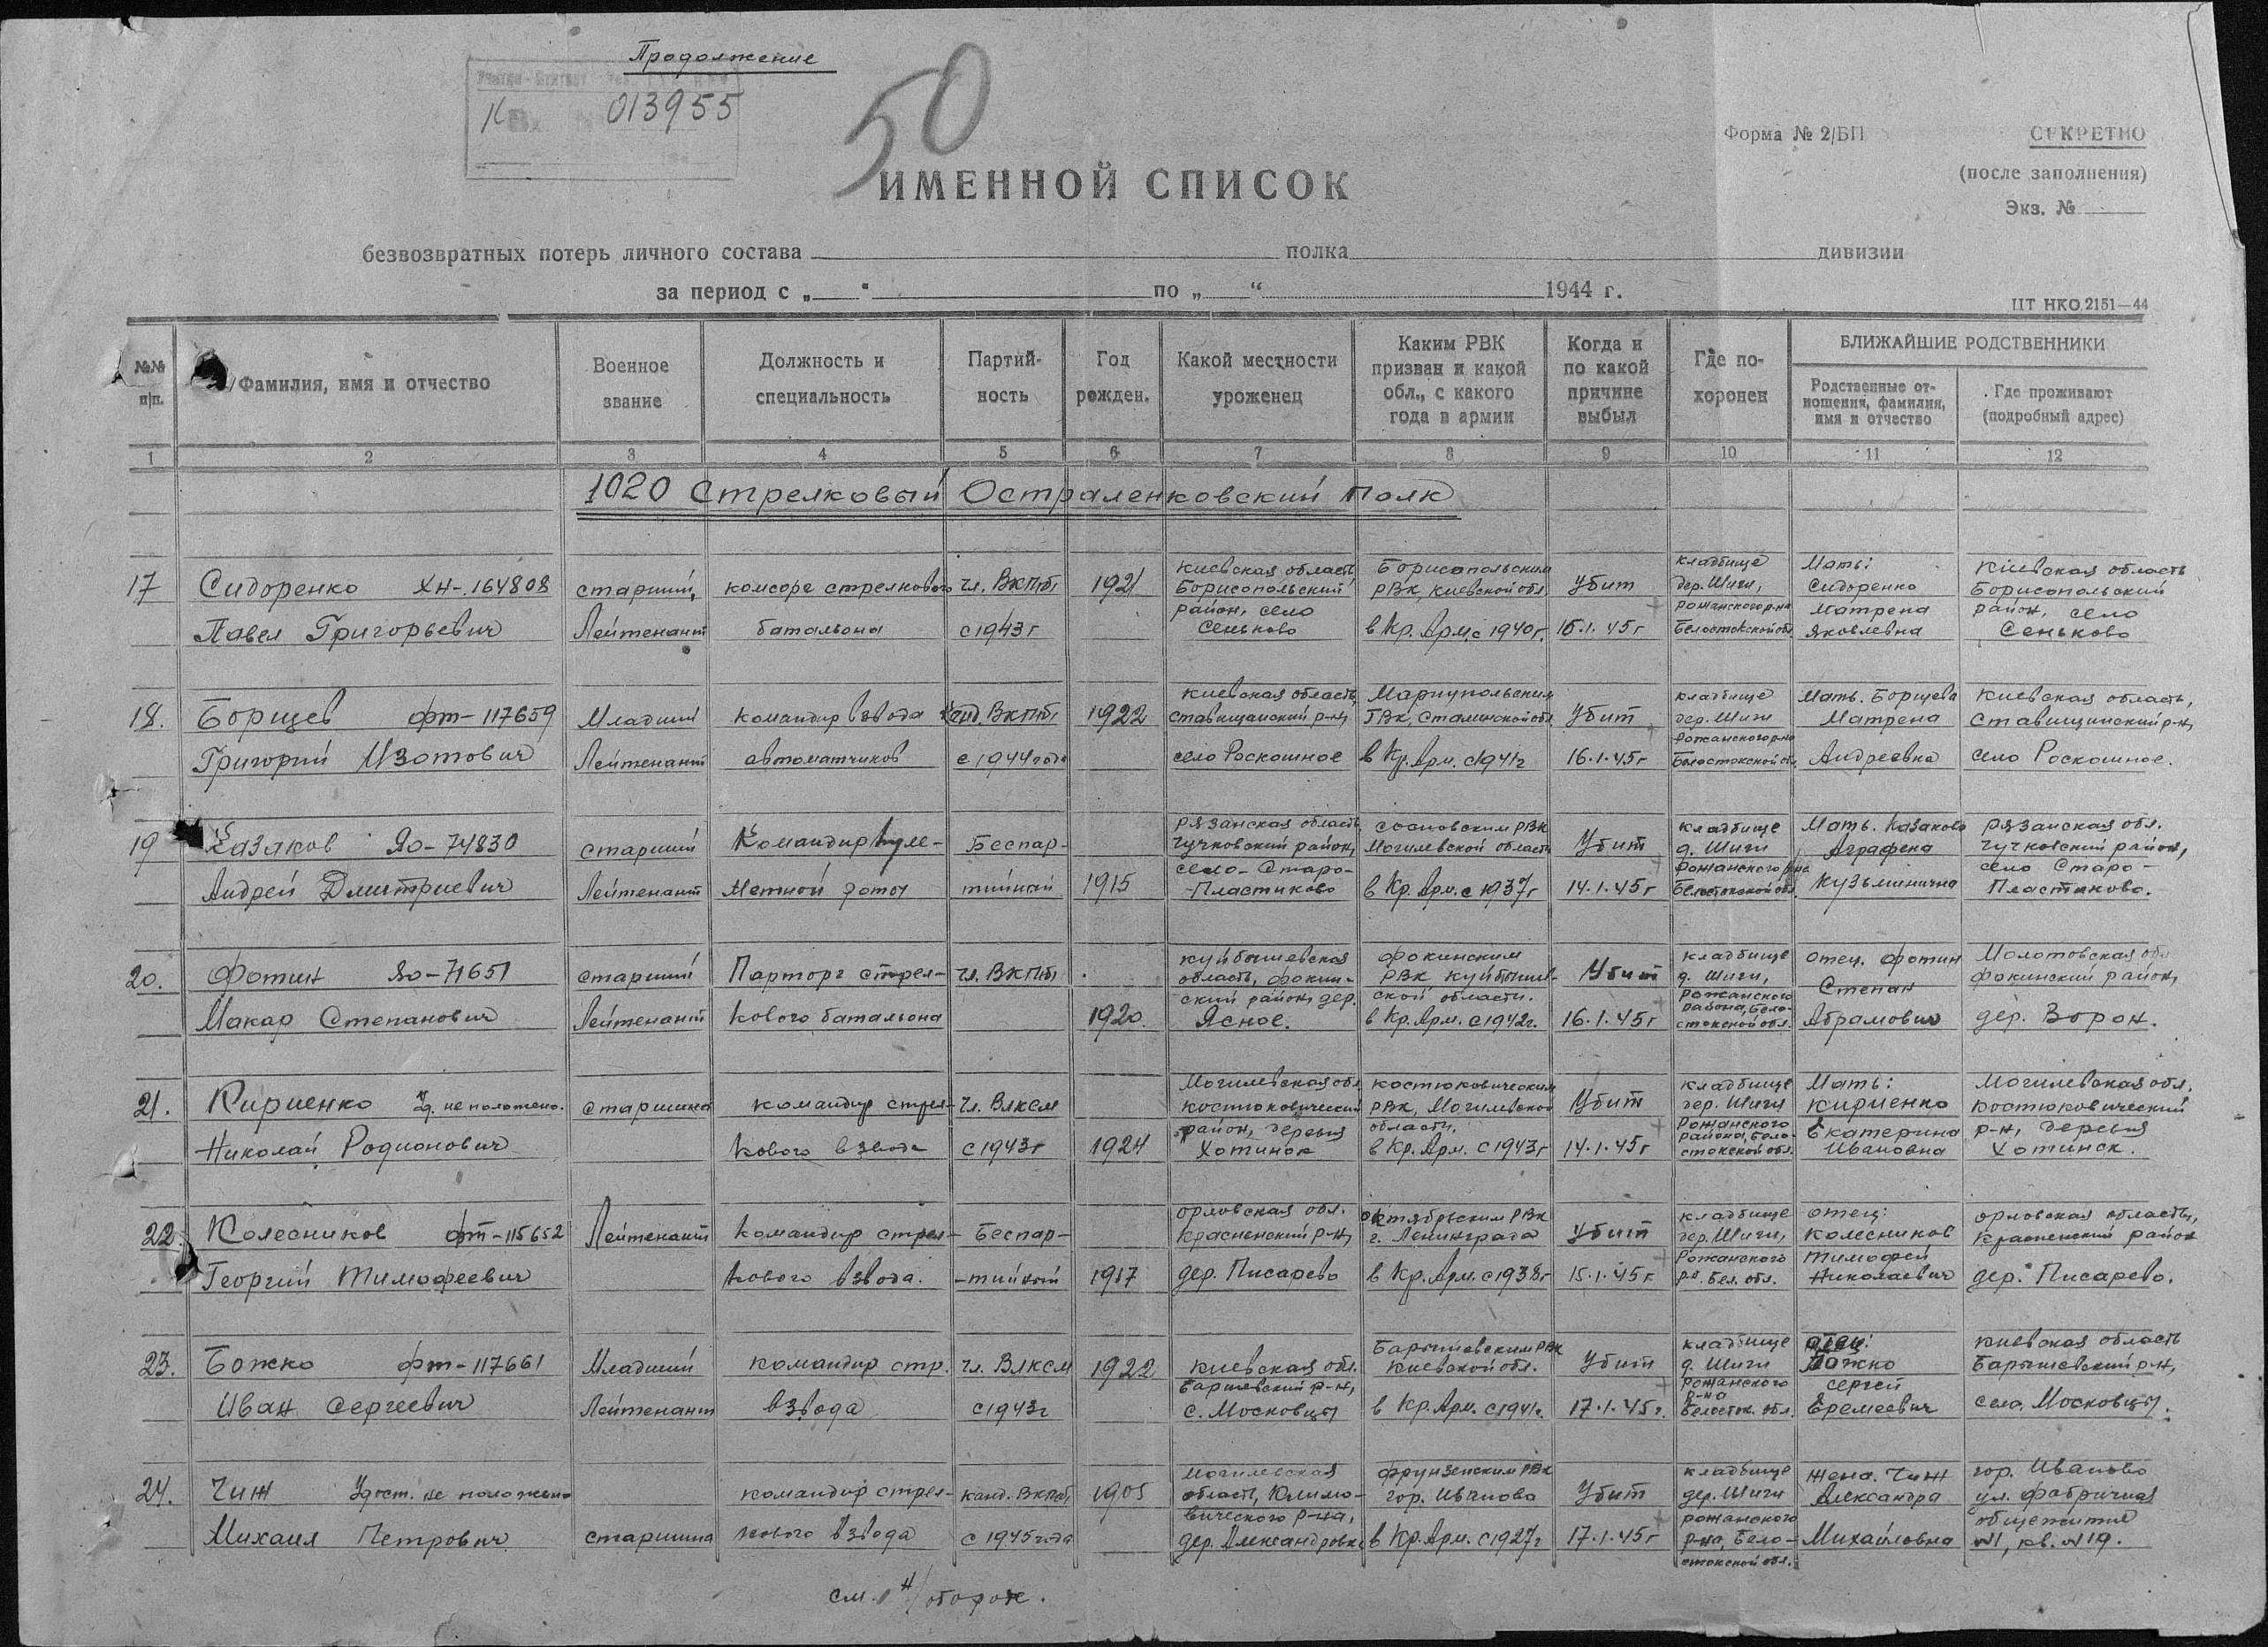 Продолжение
К Вх. № 013955
50
Форма № 2/БП
СЕКРЕТНО
(после заполнения)
Экз. №
ИМЕННОЙ СПИСОК
безвозвратных потерь личного состава полка дивизии
за период с „ “ по „ “ 1944 г.
ЦТ НКО 2151—44
№№ п/п.
Фамилия, имя и отчество
Военное звание
Должность и специальность
Партий-ность
Год рожден.
Какой местности уроженец
Каким РВК призван и какой обл., с какого года в армии
Когда и по какой причине выбыл
Где по-хоронен
БЛИЖАЙШИЕ РОДСТВЕННИКИ
Родственные от-ношения, фамилия, имя и отчество
Где проживают (подробный адрес)
1 2 3 4 5 6 7 8 9 10 11 12
1020 Стрелковый Остраленковский полк
17 Сидоренко ХН-164808
Павел Григорьевич
старший
Лейтенант
комсорг стрелкового
батальона
чл. ВКП/б/
с 1943 г
1921
Киевская область
Борисопольский
район, село
Сеньково
Борисопольским
РВК, Киевской обл
в Кр. Арм. с 1940 г.
Убит
16.1.45 г
кладбище
дер. Шиги,
Рожанского р-на
Белостокской обл
Мать:
Сидоренко
Матрена
Яковлевна
Киевская область
Борисопольский
район, село
Сеньково
18. Борщев фт-117659
Григорий Изотович
Младший
Лейтенант
командир взвода
автоматчиков
канд. ВКП/б/
с 1944 года
1922
Киевская область,
Ставищанский р-н,
село Роскошное
Мариупольским
ГВК, Сталинской обл.
в Кр. Арм. с 1941 г
Убит
16.1.45 г
кладбище
дер. Шиги
Рожанского р-на
Белостокской обл.
Мать. Борщева
Матрена
Андреевна
Киевская область,
Ставищинский р-н,
село Роскошное.
19 Казаков Яо-74830
Андрей Дмитриевич
старший
Лейтенант
Командир пуле-
метной роты
Беспар-
тийный
1915
Рязанская область,
Чучковский район,
село-Старо-
Пластиково
Сосновским РВК
Могилевской области
в Кр. Арм. с 1937 г
Убит
14.1.45 г
кладбище
д. Шиги
Рожанского р-на
Белостокской обл.
Мать. Казакова
Аграфена
Кузьминична
Рязанская обл.
Чучковский район,
село Старо-
Пластиково.
20. Фотин Яо-71651
Макар Степанович
старший
Лейтенант
Парторг стрел-
кового батальона
чл. ВКП/б/
1920.
Куйбышевская
область, Фокин-
ский район, дер.
Ясное.
Фокинским
РВК Куйбышев-
ской области.
в Кр. Арм. с 1942 г.
Убит
16.1.45 г
кладбище
д. Шиги,
Рожанского
района, Бело-
стокской обл.
отец. Фотин
Степан
Абрамович
Молотовская обл
Фокинский район,
дер. Ворон.
21. Кириенко Уд. не положено.
Николай Родионович
старшина
командир стрел-
кового взвода
чл. ВЛКСМ
с 1943 г
1924
Могилевская обл
Костюковический
район, деревня
Хотинск
Костюковическим
РВК, Могилевской
области.
в Кр. Арм. с 1943 г
Убит
14.1.45 г
кладбище
дер. Шиги
Рожанского
района, Бело-
стокской обл.
Мать:
Кириенко
Екатерина
Ивановна
Могилевская обл.
Костюковический
р-н, деревня
Хотинск.
22. Колесников фт-115652
Георгий Тимофеевич
Лейтенант
командир стрел-
кового взвода.
Беспар-
-тийный
1917
Орловская обл.
Красненский р-н,
дер. Писарево
Октябрьским РВК
г. Ленинграда
в Кр. Арм. с 1938 г
Убит
15.1.45 г
кладбище
дер. Шиги,
Рожанского
р-н Бел. обл.
отец:
Колесников
Тимофей
Николаевич
Орловская область,
Красненский район
дер. Писарево.
23. Божко фт-117661
Иван Сергеевич
Младший
Лейтенант
командир стр.
взвода
чл. ВЛКСМ
с 1943 г
1922
Киевская обл.
Баришевский р-н,
с. Московцы
Барышевским РВК
Киевской обл.
в Кр. Арм. с 1941 г.
Убит
17.1.45 г.
кладбище
д. Шиги
Рожанского
р-на
Белосток. обл.
отец:
Божко
Сергей
Еремеевич
Киевская область
Барышевский р-н,
село Московцы.
24. Чиж Удост. не положено
Михаил Петрович
старшина
командир стрел-
кового взвода
канд. ВКП/б/
с 1945 года
1905
Могилевская
область, Климо-
вического р-на,
дер. Александровка
Фрунзенским РВК
гор. Иванова
в Кр. Арм. с 1927 г
Убит
17.1.45 г
кладбище
дер. Шиги
Рожанского
р-на, Бело-
стокской обл.
Жена. Чиж
Александра
Михайловна
гор. Иваново
ул. Фабричная
общежитие
№1, кв. №19.
см. н/обороте.